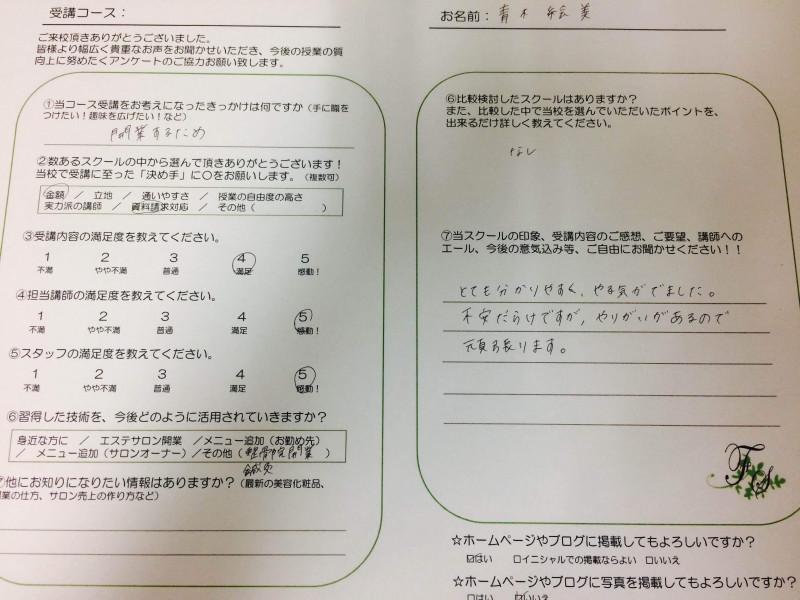 受講コース：
ご来校頂きありがとうございました。
皆様より幅広く貴重なお声をお聞かせいただき、今後の授業の質
向上に努めたくアンケートのご協力お願い致します。
①当コース受講をお考えになったきっかけは何ですか（手に職を
つけたい！趣味を広げたい！など）
開業するため
②数あるスクールの中から選んで頂きありがとうございます！
当校で受講に至った「決め手」に○をお願いします。（複数可）
金額 ／ 立地 ／ 通いやすさ ／ 授業の自由度の高さ
実力派の講師 ／ 資料請求対応 ／ その他（ ）
③受講内容の満足度を教えてください。
1 2 3 4 5
不満 やや不満 普通 満足 感動！
④担当講師の満足度を教えてください。
1 2 3 4 5
不満 やや不満 普通 満足 感動！
⑤スタッフの満足度を教えてください。
1 2 3 4 5
不満 やや不満 普通 満足 感動！
⑥習得した技術を、今後どのように活用されていきますか？
身近な方に ／ エステサロン開業 ／メニュー追加（お勤め先）
／ メニュー追加（サロンオーナー）／その他（整骨院開業 ）
鍼灸
他にお知りになりたい情報はありますか？（最新の美容化粧品、
業の仕方、サロン売上の作り方など）
お名前：青木 絵美
⑥比較検討したスクールはありますか？
また、比較した中で当校を選んでいただいたポイントを、
出来るだけ詳しく教えてください。
なし
⑦当スクールの印象、受講内容のご感想、ご要望、講師への
エール、今後の意気込み等、ご自由にお聞かせください！！
とても分かりやすく、やる気がでました。
不安だらけですが、やりがいがあるので
頑張ります。
☆ホームページやブログに掲載してもよろしいですか？
☑はい □イニシャルでの掲載ならよい □いいえ
☆ホームページやブログに写真を掲載してもよろしいですか？
□はい ☑いいえ